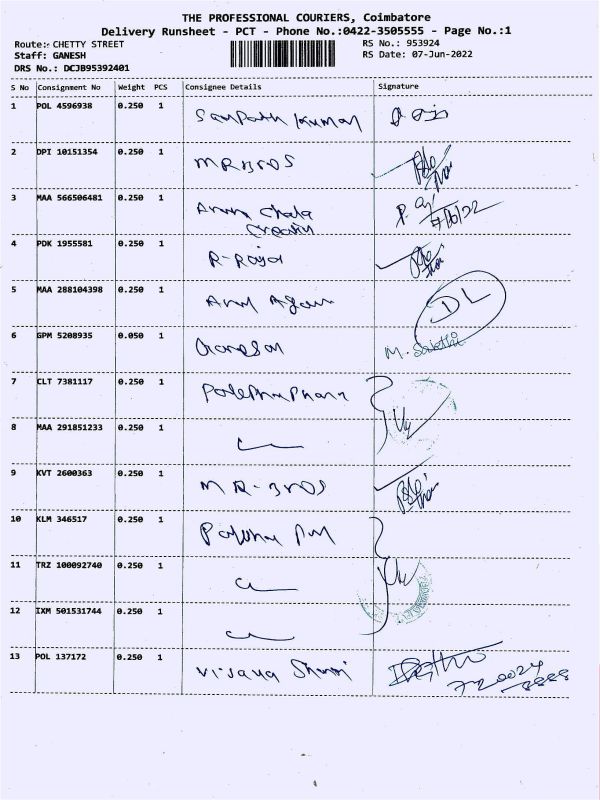 THE PROFESSIONAL COURIERS, Coimbatore
Delivery Runsheet - PCT - Phone No.:0422-3505555 - Page No.:1
Route:- CHETTY STREET RS No.: 953924
Staff: GANESH RS Date: 07-Jun-2022
DRS No.: DCJB95392401
S No Consignment No Weight PCS Consignee Details Signature
1 POL 4596938 0.250 1 Sampath Kumar
2 DPI 10151354 0.250 1 MR BROS
3 MAA 566506481 0.250 1 Arun Chala
Creation 7/6/22
4 PDK 1955581 0.250 1 R-Raja
5 MAA 288104398 0.250 1 DL
6 GPM 5208935 0.050 1 Ganesan M. Sakthi
7 CLT 7381117 0.250 1
8 MAA 291851233 0.250 1
9 KVT 2600363 0.250 1 MR-BROS
10 KLM 346517 0.250 1
11 TRZ 100092740 0.250 1
12 IXM 501531744 0.250 1
13 POL 137172 0.250 1 Vijaya